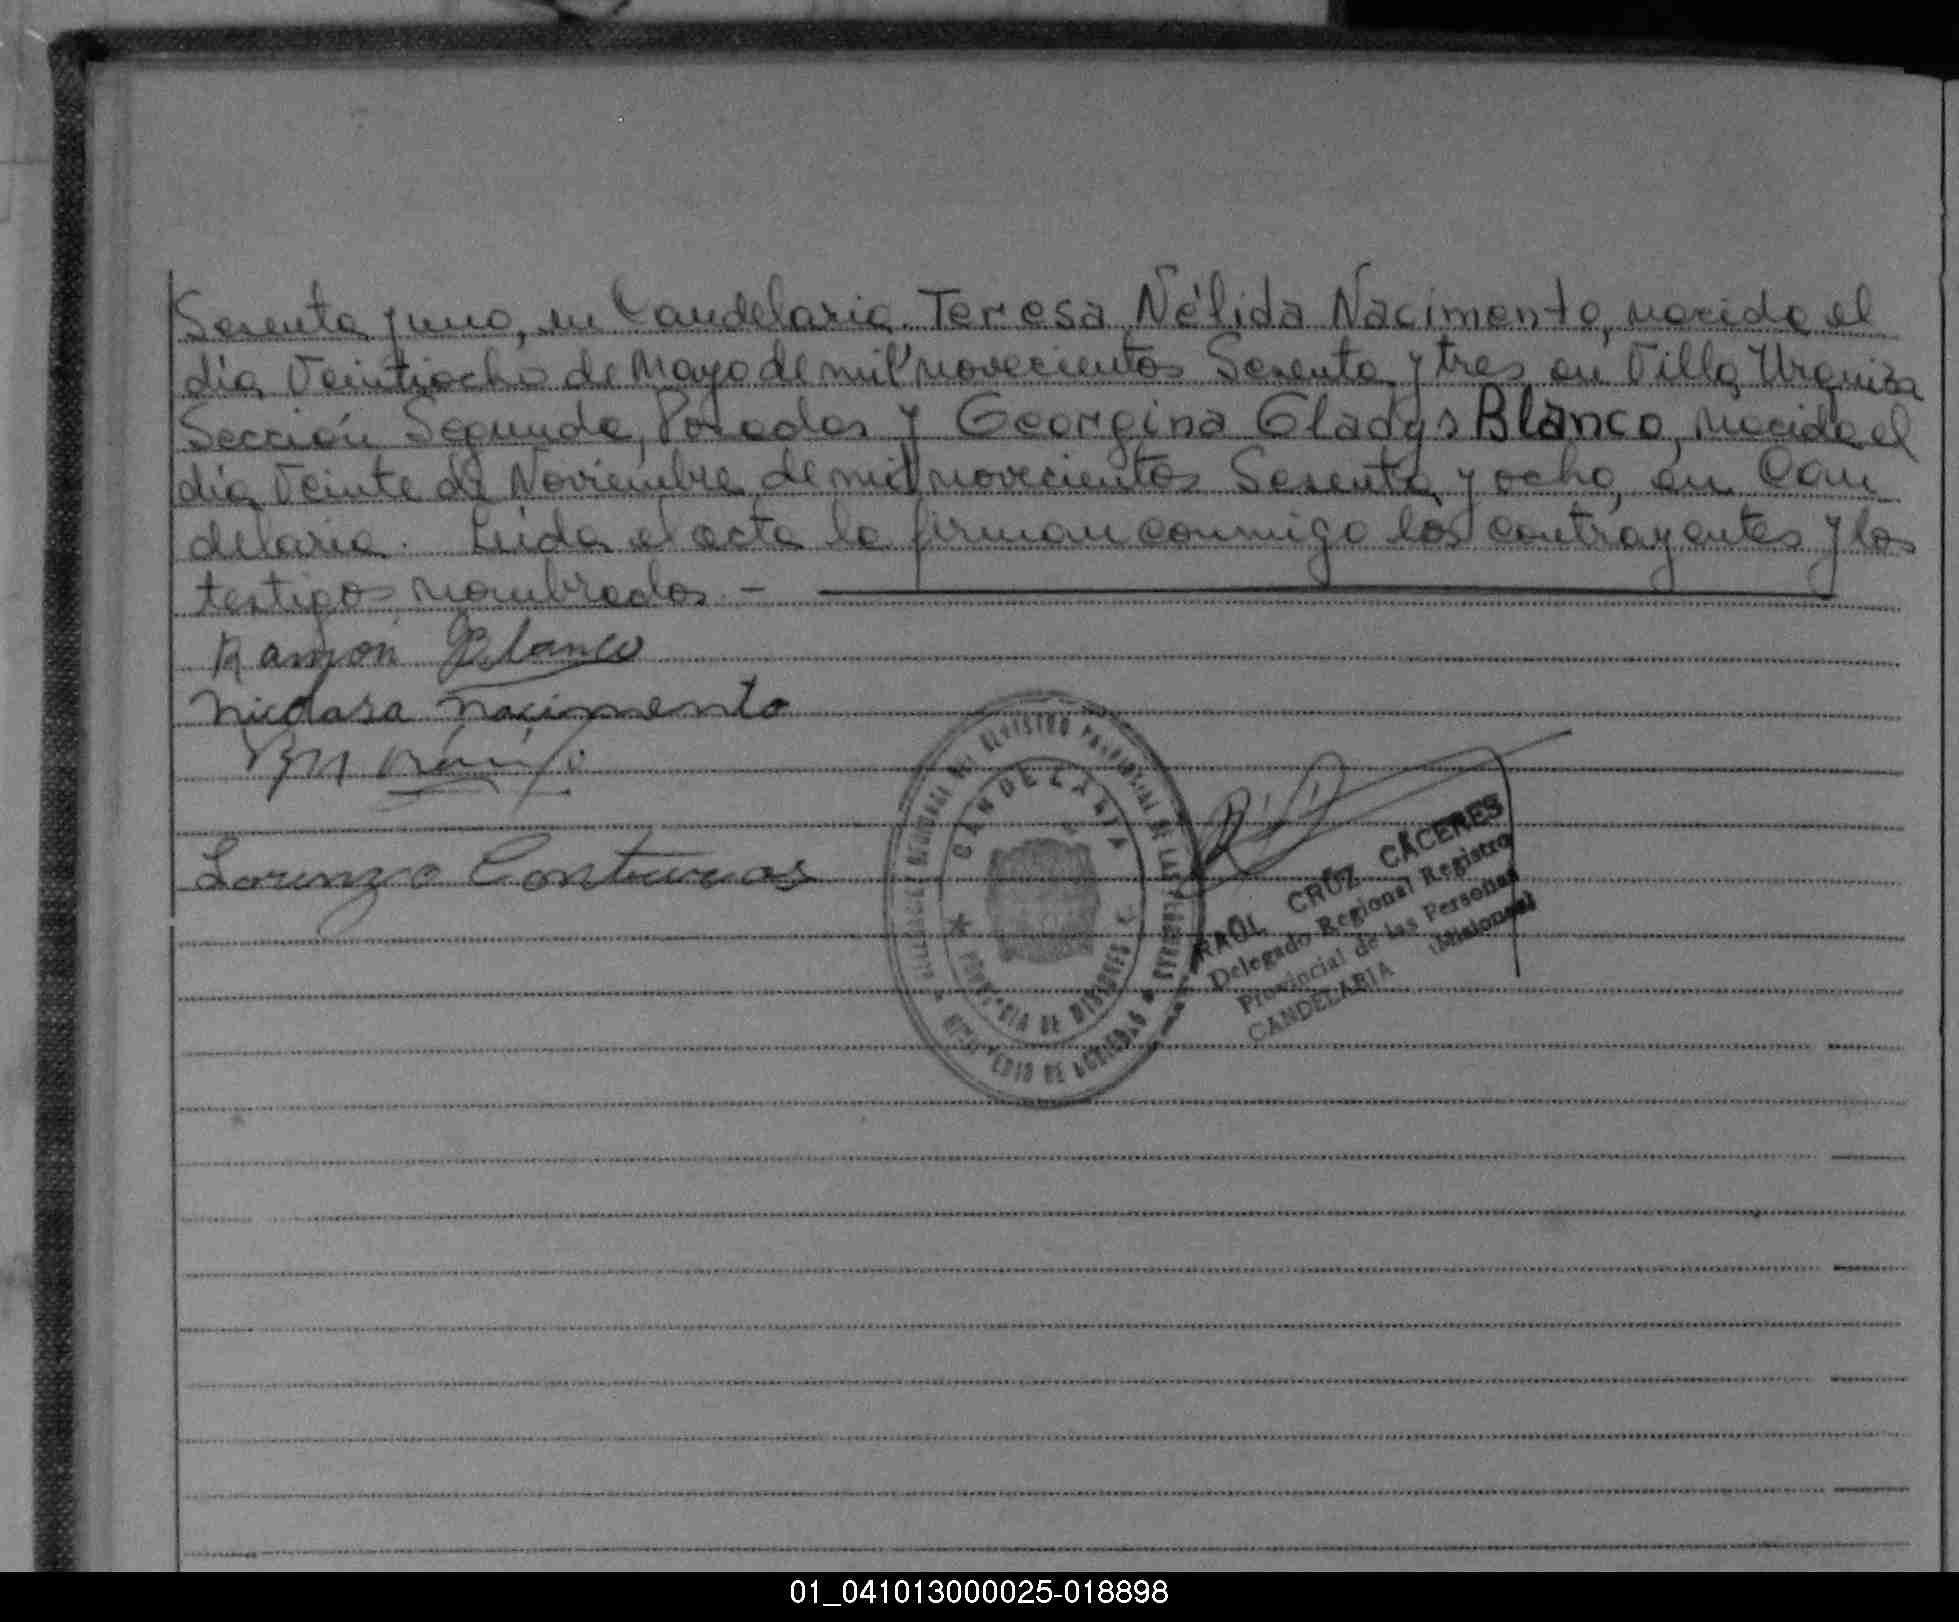 Sesenta y uno, en Candelaria. Teresa Nélida Nacimento, nacida el
día Veintiocho de Mayo de mil novecientos Sesenta y tres en Villa Urquiza
Sección Segunda, Posadas y Georgina Gladys Blanco, nacida el
día Veinte de Noviembre de mil novecientos Sesenta y ocho, en Can
delaria. Leída el acta la firman conmigo los contrayentes y los
testigos nombrados. -
Ramón Blanco
Nicolasa Nacimento
Lorenzo Contreras
CANDELARIA
PROVINCIA DE MISIONES
RAUL CRUZ CACERES
Delegado Regional Registro
Provincial de las Personas
CANDELARIA (Misiones)
01_041013000025-018898